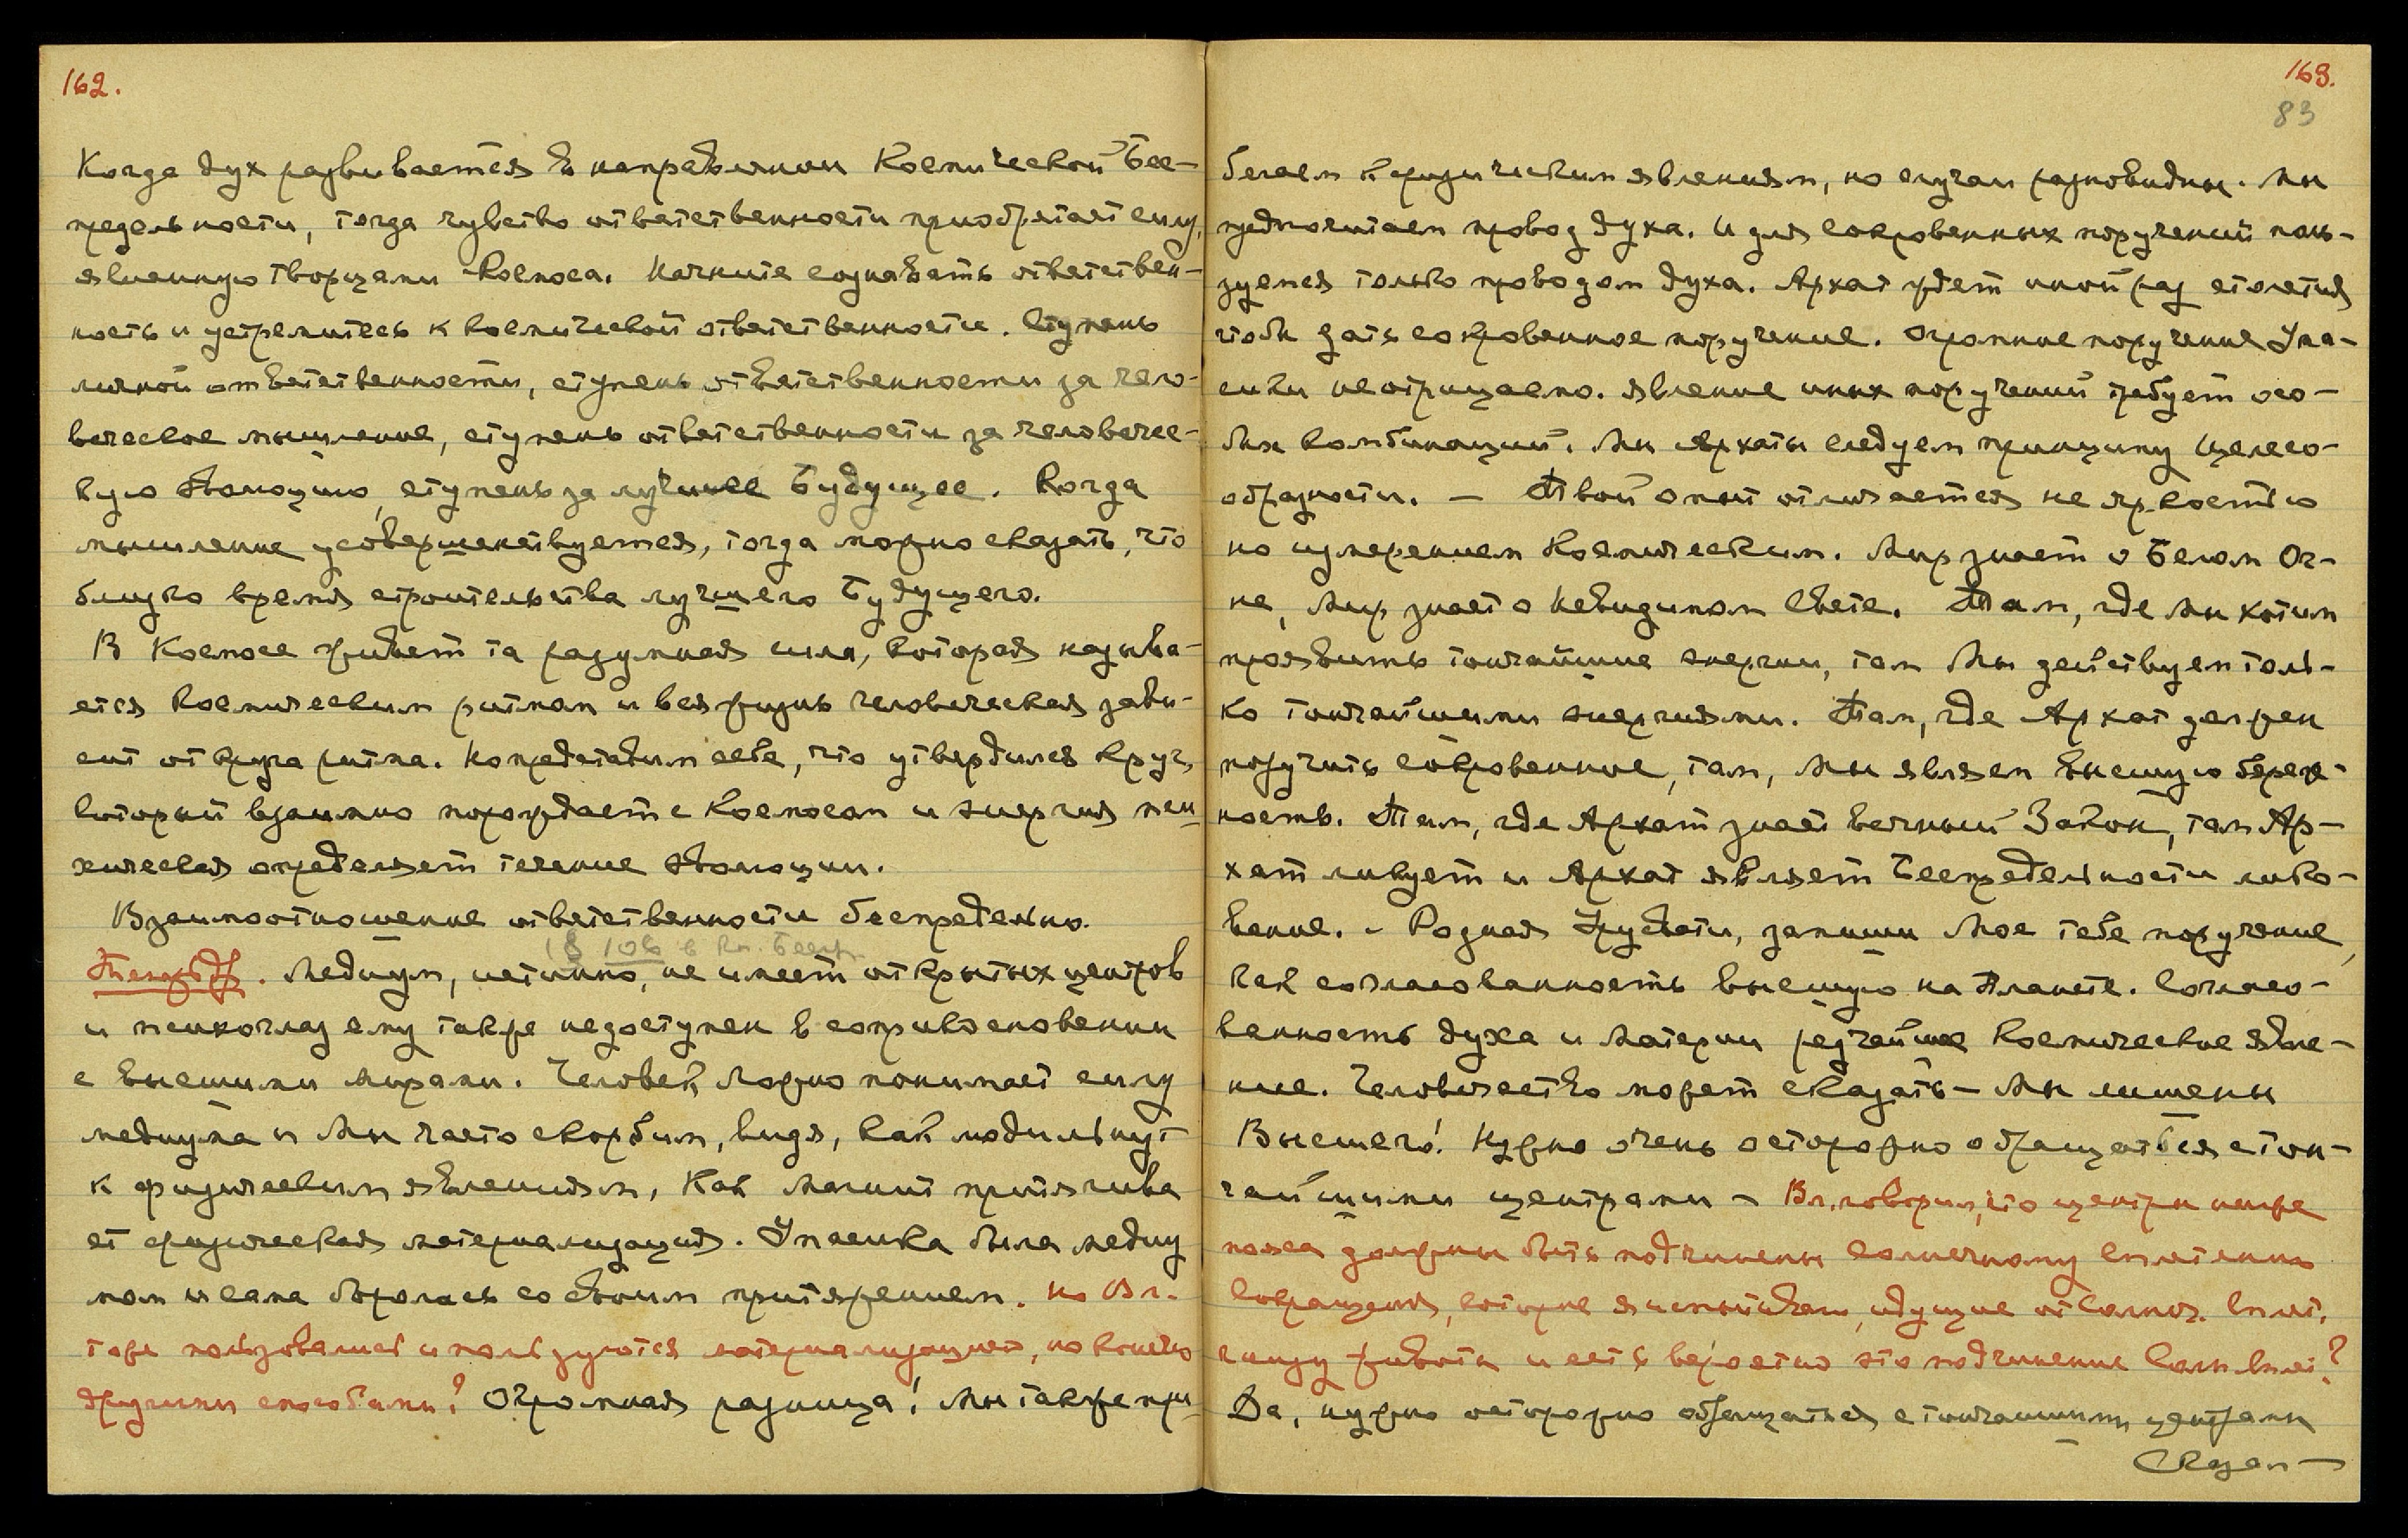 162.
Когда дух развивается в направлении Космической Бес-
предельности, тогда чувство ответственности приобретает силу,
явленную Творцами Космоса. Начните сознавать ответствен-
ность и устремитесь к космической ответственности. Ступень
личной ответственности, ступень ответственности за чело-
веческое мышление, ступень ответственности за человечес-
кую эволюцию, ступень за лучшее Будущее. Когда
мышление усовершенствуется, тогда можно сказать, что
близко время строительства лучшего Будущего.
В Космосе живет та разумная сила, которая называ-
ется Космическим ритмом и вся жизнь человеческая зави-
сит от круга ритма. Но представим себе, что утвердился круг,
который взаимно порождает с Космосом и энергия пси-
хическая определяет течение эволюции.
Взаимоотношение ответственности беспредельно.
§ 106 в Кн. Беспр.
Тетрадь. Медиум, истинно, не имеет открытых центров
и психоглаз ему также недоступен в соприкосновении
с высшими мирами. Человек ложно понимает силу
медиума и Мы часто скорбим, видя, как люди льнут
к физическим явлениям, как магнит притягива
ет физическая материализация. Упасика была медиу
мом и сама боролась со своим притяжением. Но Вл.
тоже пользовались и пользуются материализацией, но конечно
другими способами? Огромная разница! Мы также при
163.
83
бегаем к физическим явлениям, но случаи разновидны. Мы
предпочитаем провод духа. И для сокровенных поручений поль-
зуемся только проводом духа. Архат ждет иной раз столетия
чтобы дать сокровенное поручение. Огромное поручение Упа-
сики неотрицаемо. Явление иных поручений требует осо-
бых комбинаций. Мы Архаты следуем принципу целесо-
образности. – Твой опыт отличается не яркостью
но измерением Космическим. Мир знает о Белом Ог-
не, Мир знает о Невидимом Свете. Там, где Мы хотим
проявить тончайшие энергии, там Мы действуем толь-
ко тончайшими энергиями. Там, где Архат должен
поручить сокровенное, там, Мы являем высшую береж-
ность. Там, где Архат знает вечный Закон, там Ар-
хат ликует и Архат являет Беспредельности лико-
вание. – Родная Урусвати, запиши Мое тебе поручение,
как согласованность высшую на Планете. Согласо-
ванность духа и материи редчайшее Космическое явле-
ние. Человечество может сказать – Мы лишены
Высшего! Нужно очень осторожно обращаться с тон-
чайшими центрами – Вл. говорил, что центры ниже
пояса должны быть подчинены солнечному сплетению
сокращения, которые я испытываю, идущие от солнеч. сплет.
книзу живота и есть вероятно это подчинение солн. сплет?
Да, нужно осторожно обращаться с тончайшими центрами
Сказал –